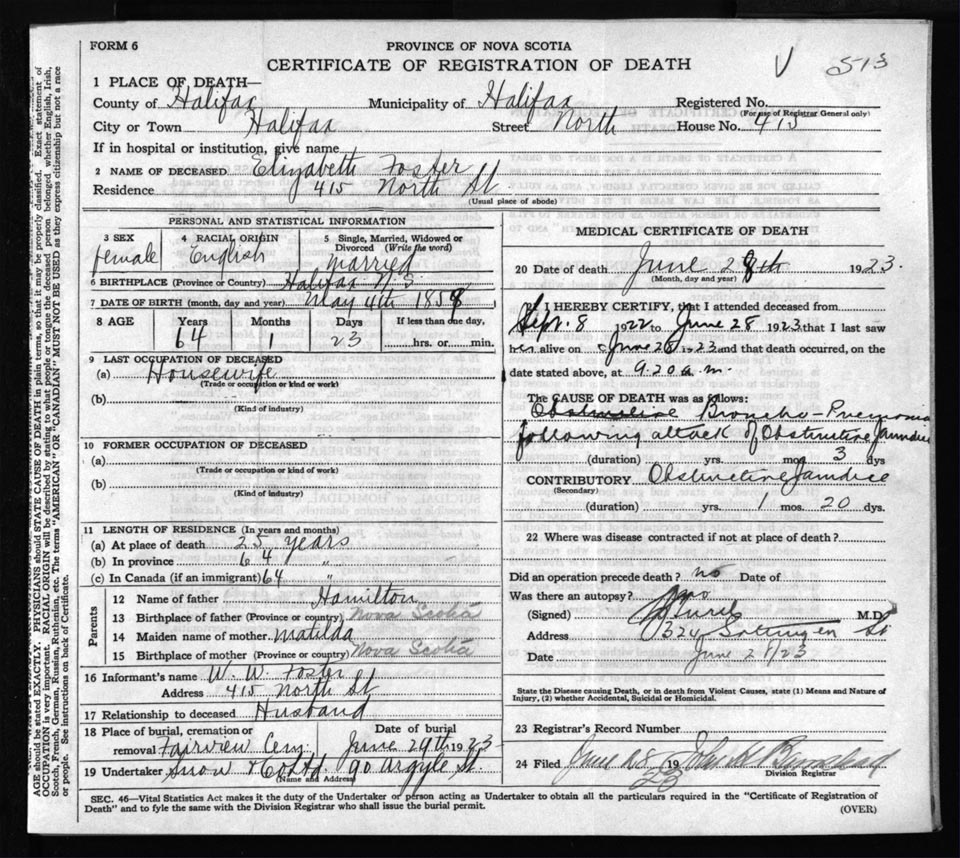 FORM 6
PROVINCE OF NOVA SCOTIA
CERTIFICATE OF REGISTRATION OF DEATH
V 513
1 PLACE OF DEATH—
County of Halifax Municipality of Halifax Registered No.
(For use of Registrar General only)
City or Town Halifax Street North House No. 415
If in hospital or institution, give name
2 NAME OF DECEASED Elizabeth Foster
Residence 415 North St
(Usual place of abode)
PERSONAL AND STATISTICAL INFORMATION
3 SEX 4 RACIAL ORIGIN 5 Single, Married, Widowed or Divorced (Write the word)
female English married
6 BIRTHPLACE (Province or Country) Halifax N.S
7 DATE OF BIRTH (month, day and year) May 4th 1859
8 AGE Years Months Days If less than one day,
64 1 23 hrs. or min.
9 LAST OCCUPATION OF DECEASED
(a) Housewife
(Trade or occupation or kind or work)
(b)
(Kind of industry)
10 FORMER OCCUPATION OF DECEASED
(a)
(Trade or occupation or kind of work)
(b)
(Kind of industry)
11 LENGTH OF RESIDENCE (In years and months)
(a) At place of death 25 years
(b) In province 64 "
(c) In Canada (if an immigrant) 64 "
Parents
12 Name of father Hamilton
13 Birthplace of father (Province or country) Nova Scotia
14 Maiden name of mother Matilda
15 Birthplace of mother (Province or country) Nova Scotia
16 Informant's name W. W. Foster
Address 415 North St
17 Relationship to deceased Husband
18 Place of burial, cremation or removal Fairview Cem Date of burial June 29th 1923
19 Undertaker Snow & Co Ltd 90 Argyle St.
(Name and Address)
MEDICAL CERTIFICATE OF DEATH
20 Date of death June 28th 1923.
(Month, day and year)
I HEREBY CERTIFY, that I attended deceased from
Sept. 8 1922 to June 28 1923 that I last saw
her alive on June 28 1923 and that death occurred, on the
date stated above, at 9.20 a.m.
The CAUSE OF DEATH was as follows:
Broncho-Pneumonia
following attack of Obstructive Jaundice
(duration) yrs. mos 3 dys
CONTRIBUTORY Obstructive Jaundice
(Secondary)
(duration) yrs. 1 mos. 20 dys.
22 Where was disease contracted if not at place of death?
Did an operation precede death? no Date of
Was there an autopsy? no
(Signed) M.D.
Address 324 St
Date June 28/23
State the Disease causing Death, or in death from Violent Causes, state (1) Means and Nature of
Injury, (2) whether Accidental, Suicidal or Homicidal.
23 Registrar's Record Number
24 Filed June 28 1923
Division Registrar
SEC. 46—Vital Statistics Act makes it the duty of the Undertaker or person acting as Undertaker to obtain all the particulars required in the "Certificate of Registration of
Death" and to fyle the same with the Division Registrar who shall issue the burial permit.
(OVER)
AGE should be stated EXACTLY. PHYSICIANS should STATE CAUSE OF DEATH in plain terms, so that it may be properly classified. Exact statement of
OCCUPATION is very important. RACIAL ORIGIN will be described by stating to what people or tongue the deceased person belonged whether English, Irish,
Scotch, French, German, Russian, Ruthenian, etc. The terms "AMERICAN" OR "CANADIAN" MUST NOT BE USED as they express citizenship but not a race
or people. See instructions on back of Certificate.